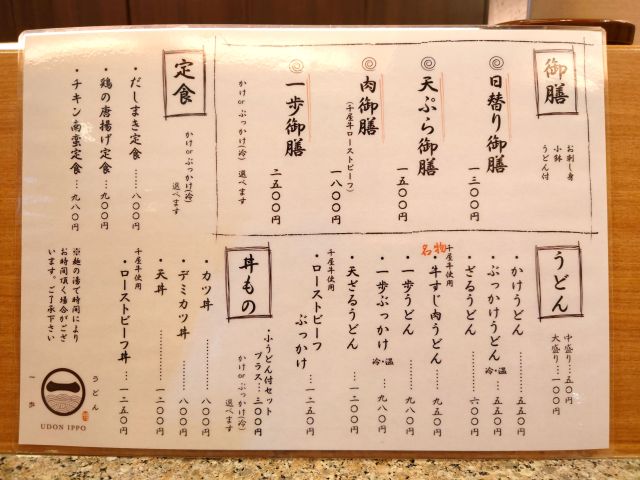 御膳
お刺し身
小鉢
うどん付
日替り御膳
一三〇〇円
天ぷら御膳
一五〇〇円
肉御膳
(千屋牛ローストビーフ)
一八〇〇円
一歩御膳
二五〇〇円
かけorぶっかけ(冷)
選べます
定食
かけorぶっかけ(冷)
選べます
・だしまき定食……八〇〇円
・鶏の唐揚げ定食……九〇〇円
・チキン南蛮定食…九八〇円
うどん
中盛り…五〇円
大盛り…一〇〇円
・かけうどん………五五〇円
・ぶっかけうどん 冷・温 五五〇円
・ざるうどん………六〇〇円
名物
千屋牛使用
・牛すじ肉うどん…九五〇円
・一歩うどん………九八〇円
・一歩ぶっかけ 冷・温 九八〇円
・天ざるうどん…一三五〇円
千屋牛使用
・ローストビーフ
ぶっかけ…一二五〇円
丼もの
・小うどん付セット
プラス…三〇〇円
かけorぶっかけ(冷)
選べます
・カツ丼………八〇〇円
・デミカツ丼………八〇〇円
・天丼………一二〇〇円
千屋牛使用
・ローストビーフ丼…一二五〇円
※麺の湯で時間により
お時間頂く場合がござ
います。ご了承下さい
うどん
一歩
UDON IPPO